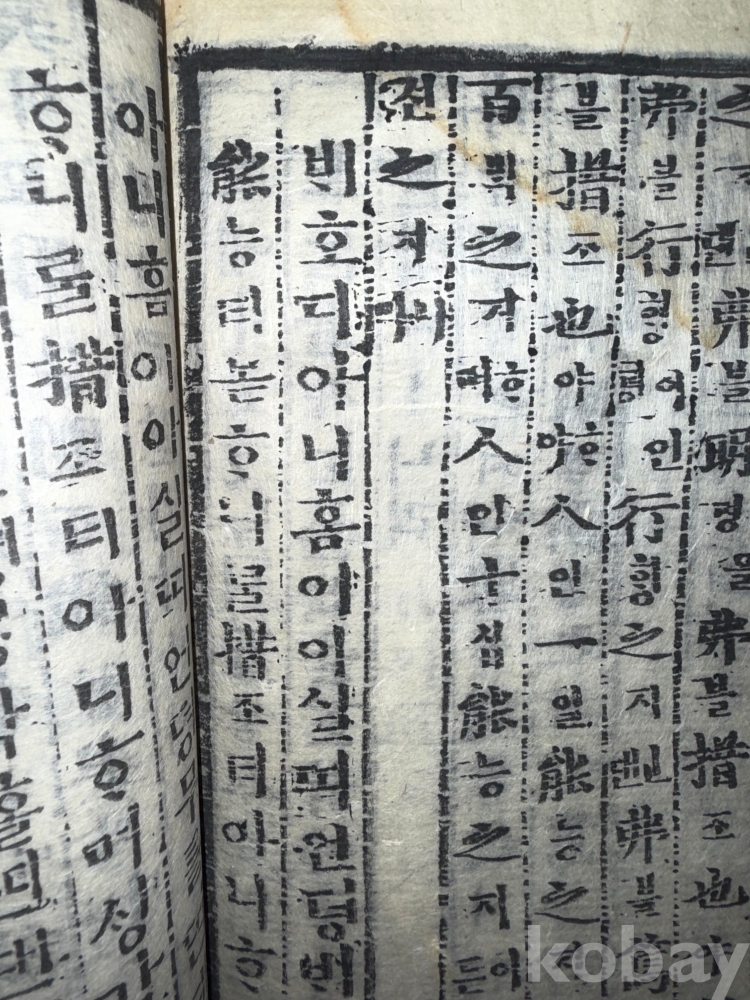 之 弗블明명을弗블措조也
弗블行ᄒᆡᆼ이언뎡行ᄒᆡᆼ之지린弗블篤
블措조也야ᄒᆞ야人인一일能능之
百ᄇᆡᆨ之지ᄒᆞ며人인十십能능之지이든
쳔之지니라
ᄇᆡ호디아니홈이이실띠언뎡ᄇᆡ
能능티몯ᄒᆞ니를措조티아니ᄒᆞ
아니홈이이실띠언뎡무를
ᄒᆞ니를措조티아니ᄒᆞ며ᄉᆡᆼ각
kobay